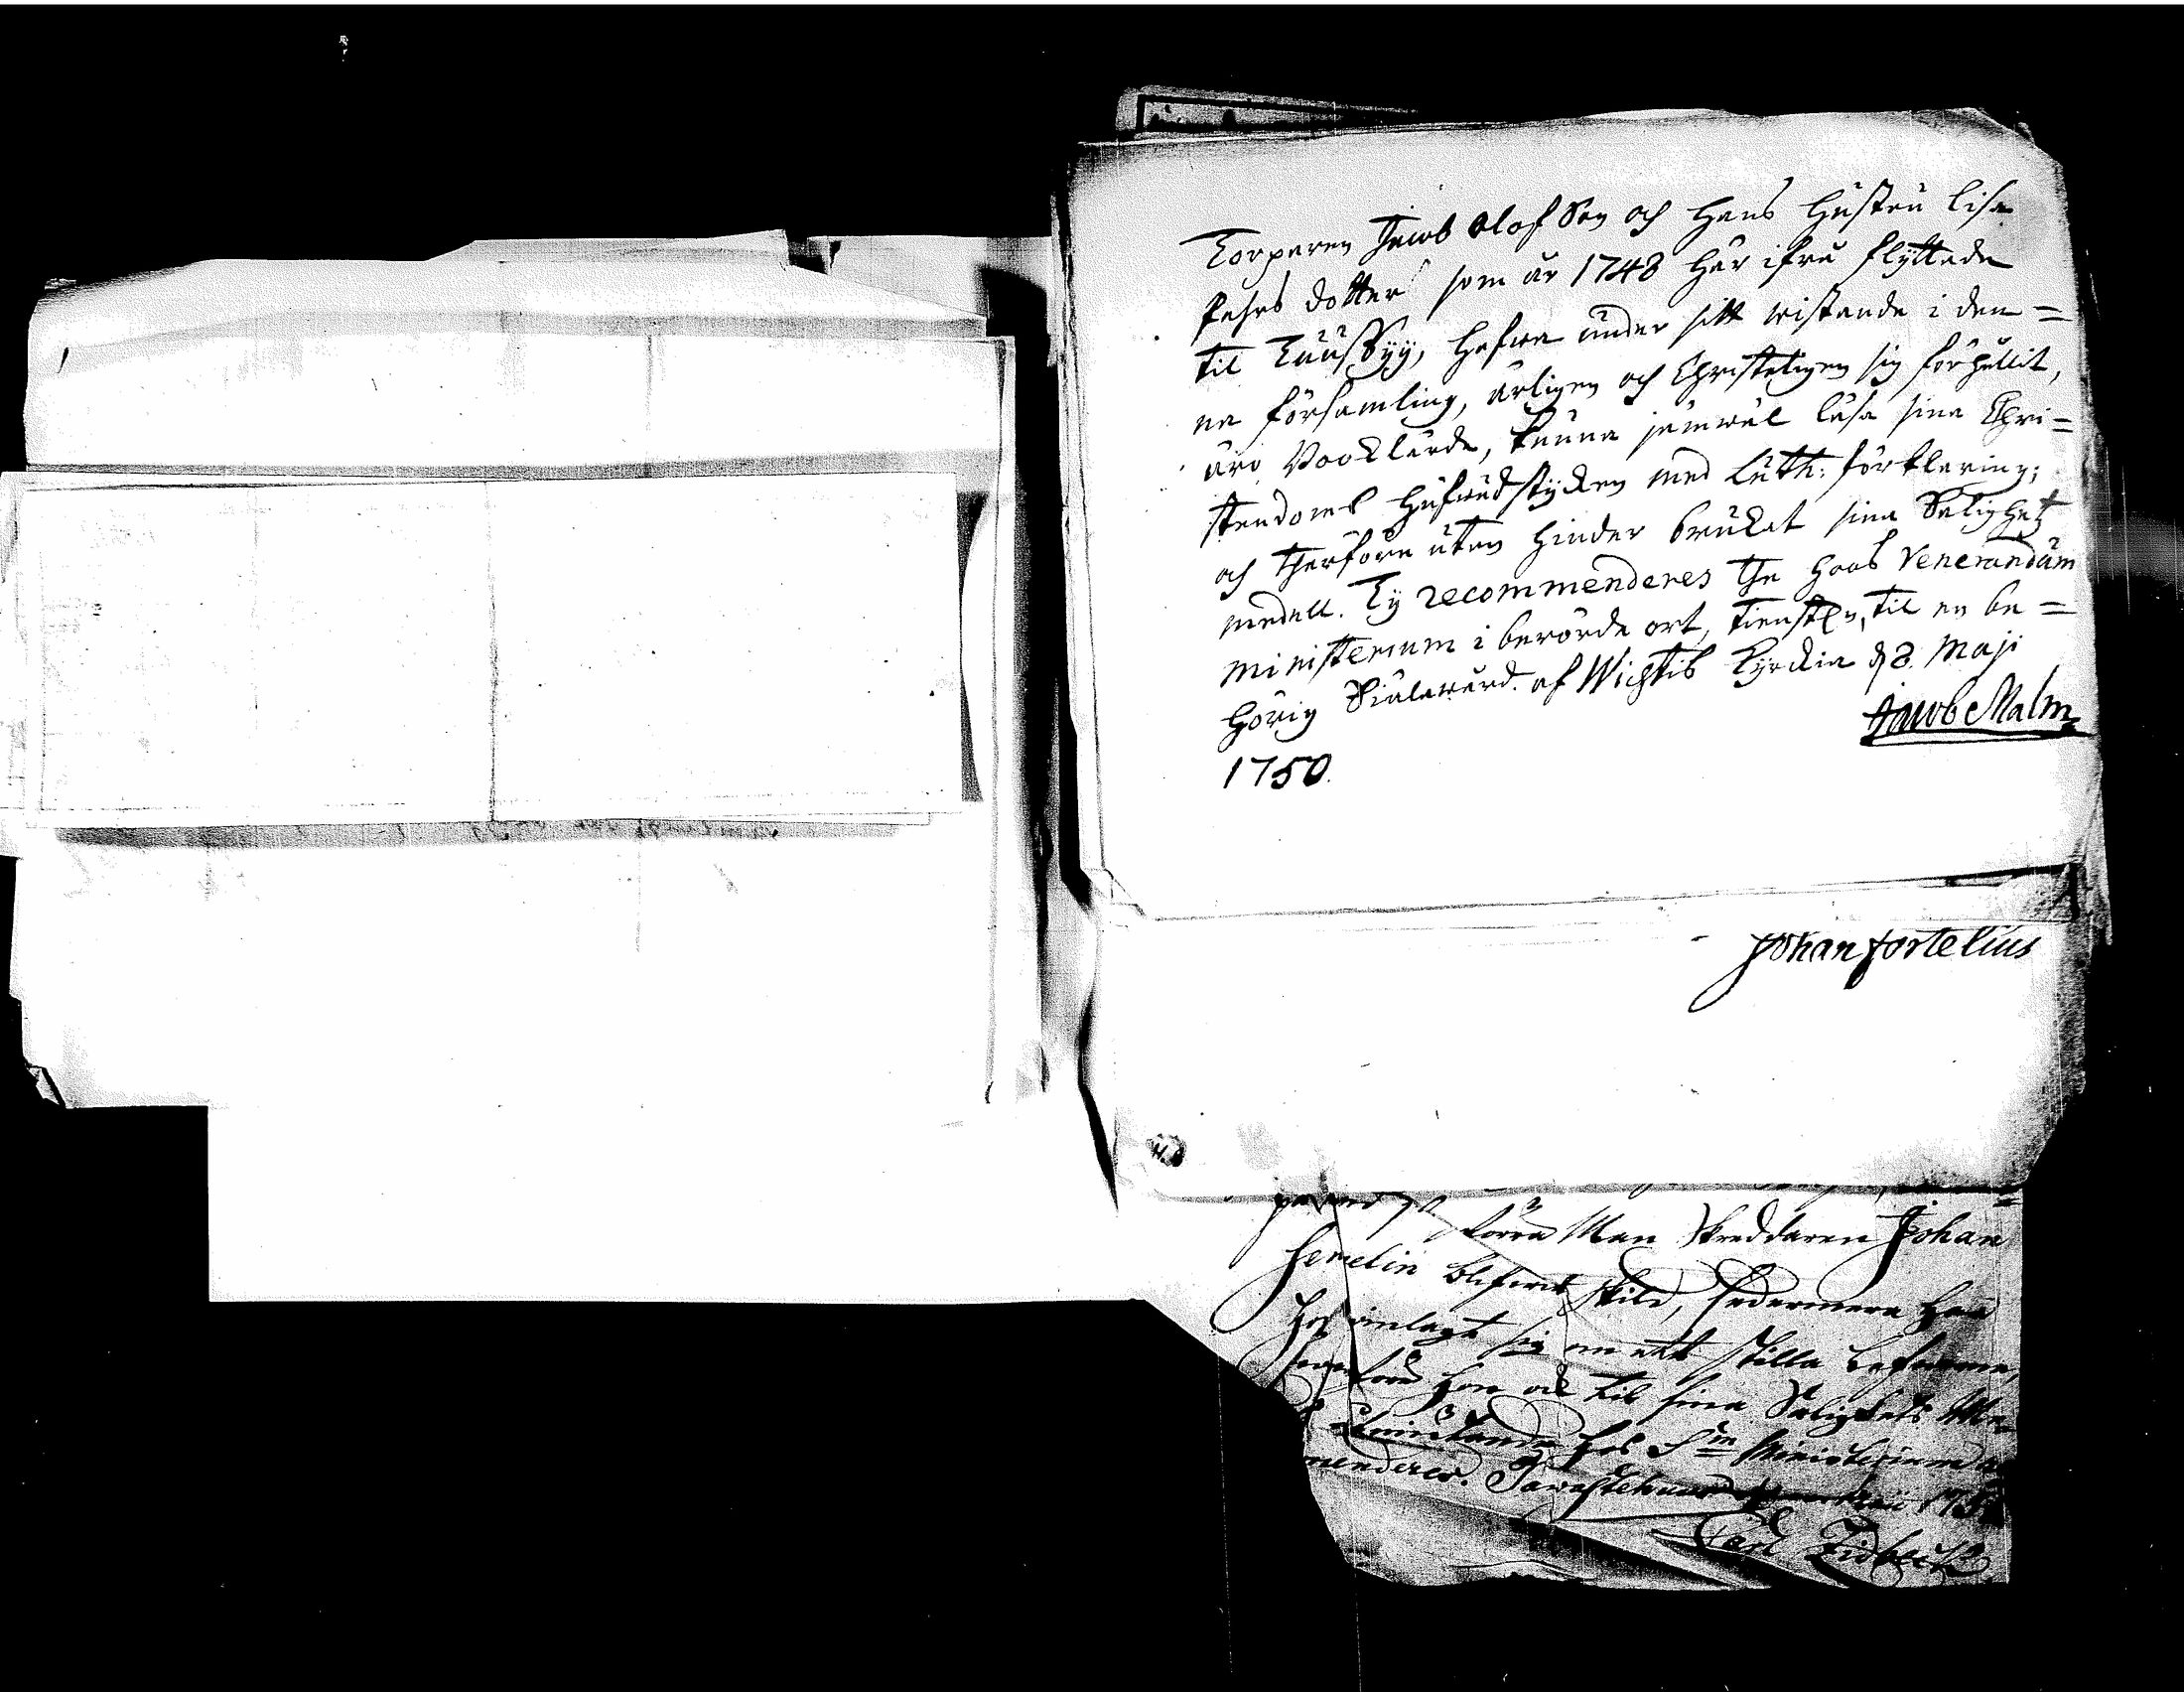 Torparen Jacob Olofson och Hans Hustru Lisa
Pehrs dotter som år 1748 här ifrå flyttade
til Tuusby, hafwa under sitt wistande i den=
na församling, ärligen och Christeligen sig förhållit,
äro booklärde, kunna jämwäl läsa sina Chri=
stendoms hufwudstycken med Luth: förklaring;
och therföre uten hinder brukat sina Salighetz
medell. Ty recommenderes the hoos Venerandum
ministerium i berörde ort, tienstl:n, til en be=
hörig Siälawård. af Wichtis Kyrckia d 8. Maji
1750.
Jacob Malm
Johan Fortelius
förra Man Skreddaren Johan
blifwit skild, sedermera har
sig om ett stilla lefwerne,
hon ock til sina Salighets Me=
hos S:m Ministerium
menderes. Tawastehus
Carl